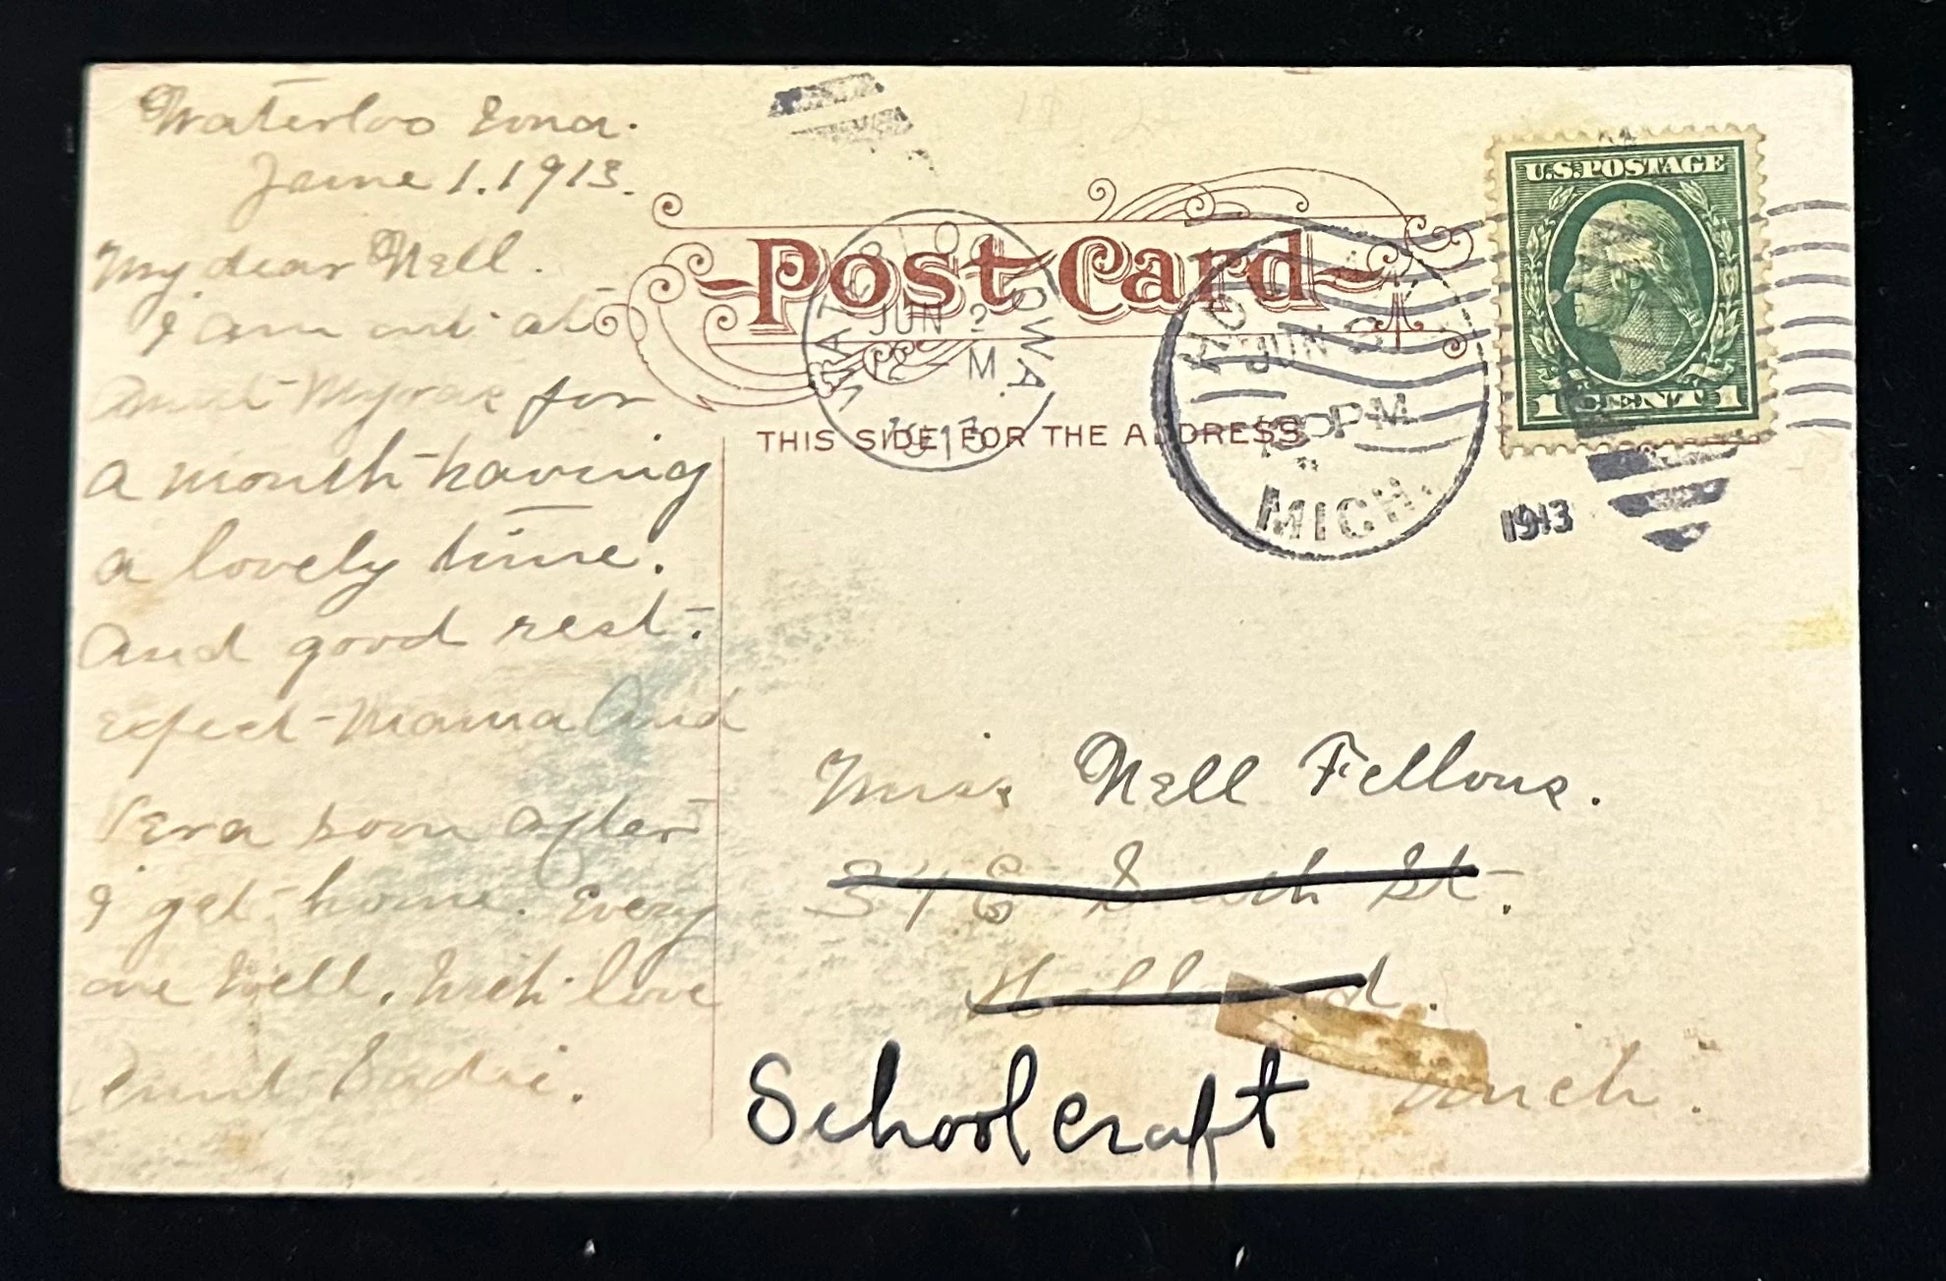 Waterloo Iowa.
June 1. 1913.
My dear Nell.
I am out at
Aunt Myras for
a month having
a lovely time.
And good rest.
Expect Mama and
Vera soon after
I get home. Every
one well. With love
Aunt Sadie.
Post Card
THIS SIDE FOR THE ADDRESS
WATERLOO IOWA
JUN 2
12 - M
1913
JUN 3
PM
MICH.
1913
U.S. POSTAGE
1 CENT 1
Miss Nell Fellows.
34 E St.
Holland.
Mich.
Schoolcraft